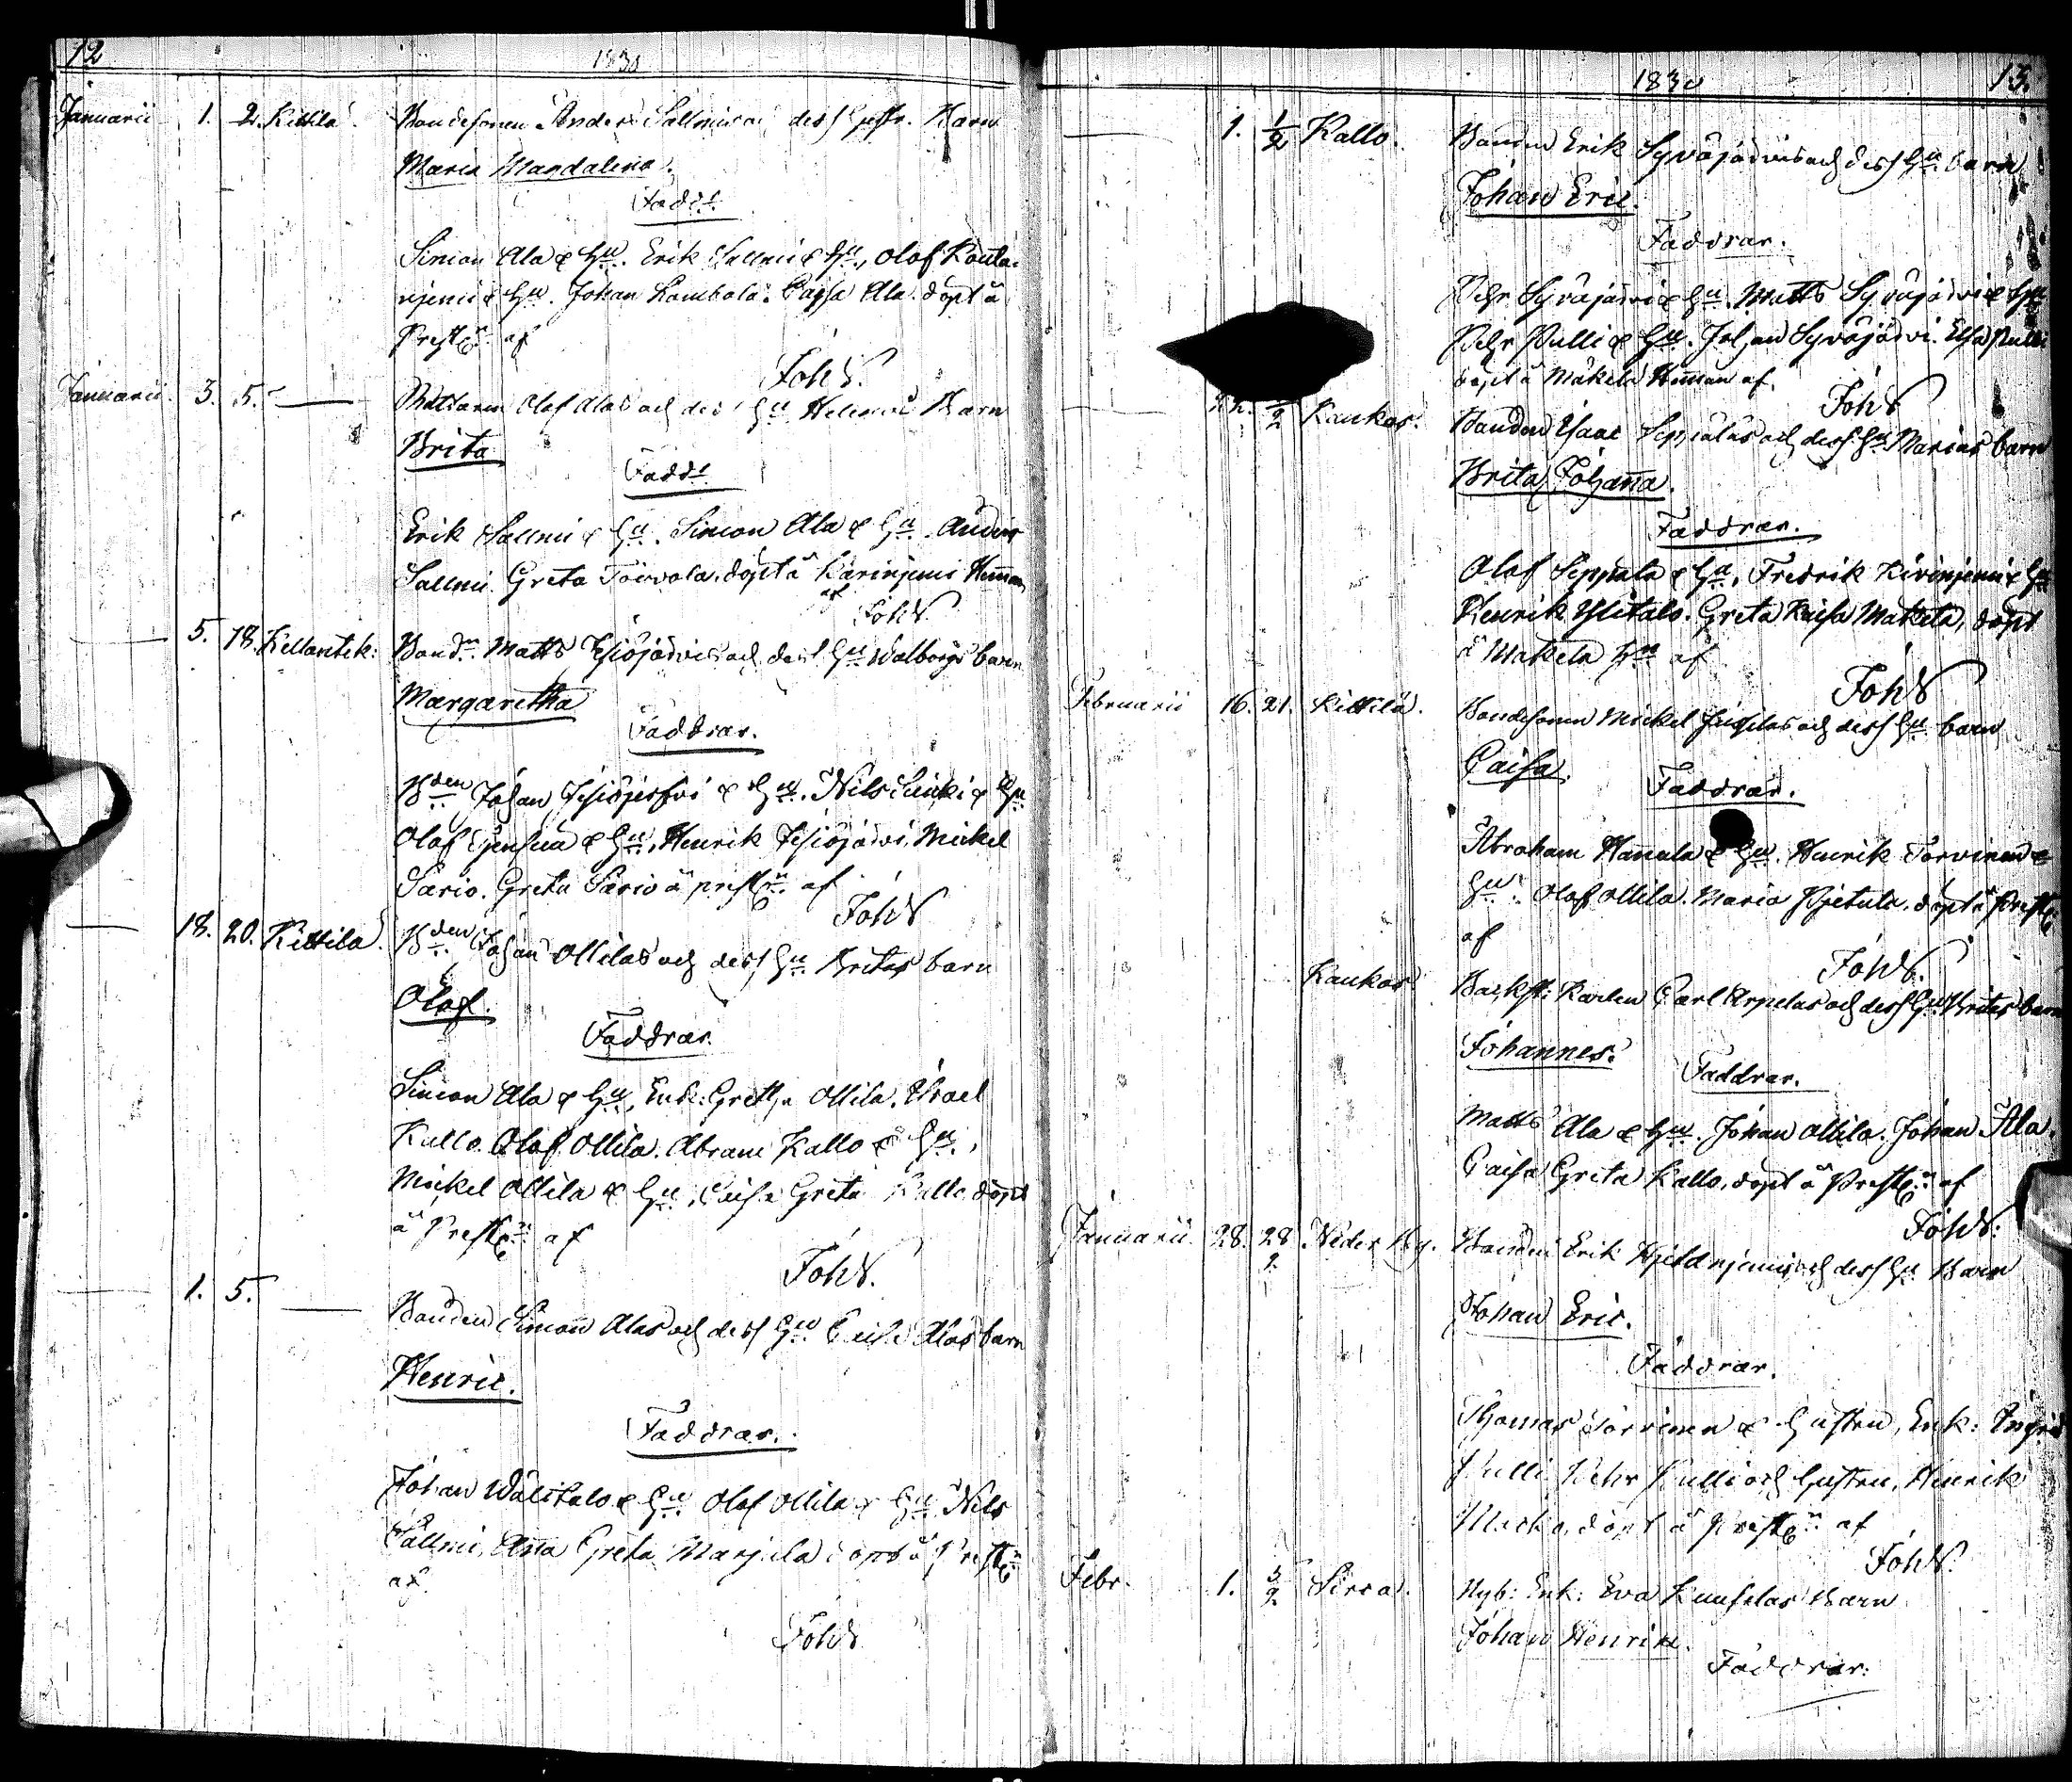 12
1830
Januarii 1. 2. Kittilä. Bondesonen Anders Sallmis och dess Hustr. Barn
Maria Magdalena.
Fadd:
Simon Ala & Hu. Erik Sallmi & Hu, Olof Kouta-
njemi & Hu. Johan Kambala. Caysa Ala. döpt å
Prest af
Joh W.
Januarii. 3. 5. — Olof Alas och dess Hu Helenas Barn
Brita
Fadd:
Erik Sallmi & Hu. Simon Ala & Hu. Anders
Sallmi. Greta Toivola. döpt å Karinjemi Heman
af
Joh W.
— 5. 18. Kellontek: Bond. Matts Jesiöjärvis och dess Hu Walborgs barn
Margaretha
Faddrar.
Bden Johan Jesiöjerfvi & Hu. Nils & Hu
Olof & Hu, Henrik Jesiöjärvi, Mickel
Sario. Greta Sario å prest af
Joh W
— 18. 20. Kittila. Bden Johan Ollilas och dess Hu Britas barn
Olof.
Faddrar.
Simon Ala & Hu, Enk: Gretha Ollila. Israel
Kallo. Olof Ollila. Abram Kallo & Hu,
Mickel Ollila & Hu, Caisa Greta Kallo döpt
å Prest af
Joh W.
1. 5. — Bonden Simon Alas och dess Hu Alas barn
Henric.
Faddrar.
Johan Wälitalo & Hu Olof Ollila & Hu Nils
Sallmi, Anna Greta Marjula döpt å Prest
af.
Joh W
1830
13.
— 1. 1/2 Kallo. Bonden Erik Syväjärvis och dess Hu. barn
Johan Eric.
Faddrar.
Pehr Syväjärvi & Hu. Matts Syväjärvi & Hu
Pehr Pulli & Hu. Johan Syväjärvi. Elsa Pulli
döpt å Mäkelä Heman af.
Joh W
Kaukos. Bonden Isaac Seppälas och dess Hu Marias barn
Brita Johanna.
Faddrar.
Olof Seppala & Hu, Fredrik Kivinjemi & Hu
Henrik Ylitalo. Greta Kaisa Makela, döpt
å Makela af
Joh W
Februarii 16. 21. Kittilä. Bondesonen Mickel och dess Hu barn
Caisa.
Faddrar.
Abraham Hannula & Hu. Henrik Torvinen &
Hu. Olof Ollila. Maria Pjetula. döpt å Prest
af
Joh W.
Kaukos Backst: Karlen Carl Arpelas och dess Hu. Britas barn
Johannes.
Faddrar.
Matts Ala & Hu. Johan Ollila. Johan Ala.
Caisa Greta Kallo, döpt å Prest af
Joh W.
Januarii. 28. 28/2 Neder By. Bonden Erik och dess Hu Barn
Johan Eric.
Faddrar.
Thomas Torvinen & Hustru, Enk: Ingrid
Pulli Pehr Pulli och Hustru, Henrik
döpt å Prest af
Joh W.
Febr. 1. Sirca. Nyb: Enk: Eva Kunselas Barn
Johan Henrik.
Faddrar.